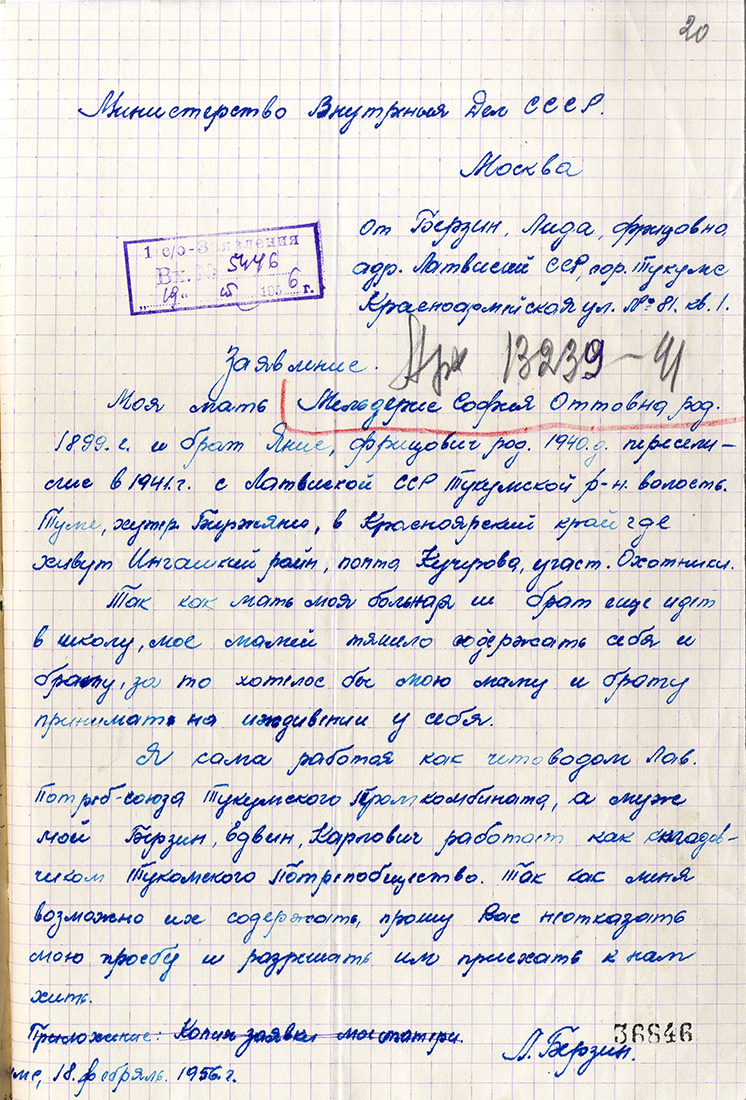 20
Министерство Внутрныя Дел СССР.
Москва
От Берзин, Лида, Фрицовно
адр. Латвисий ССР, гор. Тукумс
Красноармейская ул. № 81. кв. 1.
1 с/о-Заявления
Вх. № 5446
"19" 195 6 г.
Арх 13239-Ч
Заявление.
Моя мать Мельдерис София Оттовна род.
1899. г. и брат Янис, Фрицович род. 1940.д. пересели-
лис в 1941.г. с Латвиской ССР Тукумской р-н. волость.
Туме, хутер Биржяни, в Красноярский край где
живут Ингашкий район, почта Кучирова, участ. Охотники.
Так как мать моя больная и брат еще идет
в школу, мое мамей тяшило содержать себя и
брату, за то хотелос бы мою маму и брату
принимат на иждивении у себя.
Я сама работая как четоводом Лав.
Потреб-союза Тукумского Промкомбината, а муж
мой Берзин, Едвин, Карлович работает как складов-
чиком Тукомского Потрепобщество. Так как меня
возможно их содержать, прошу Вас неотказать
мою просбу и разрешать им приехать к нам
жить.
Приложение: Копия заявки моематери.
36846
Л. Берзин.
уме, 18. фебряль. 1956. г.